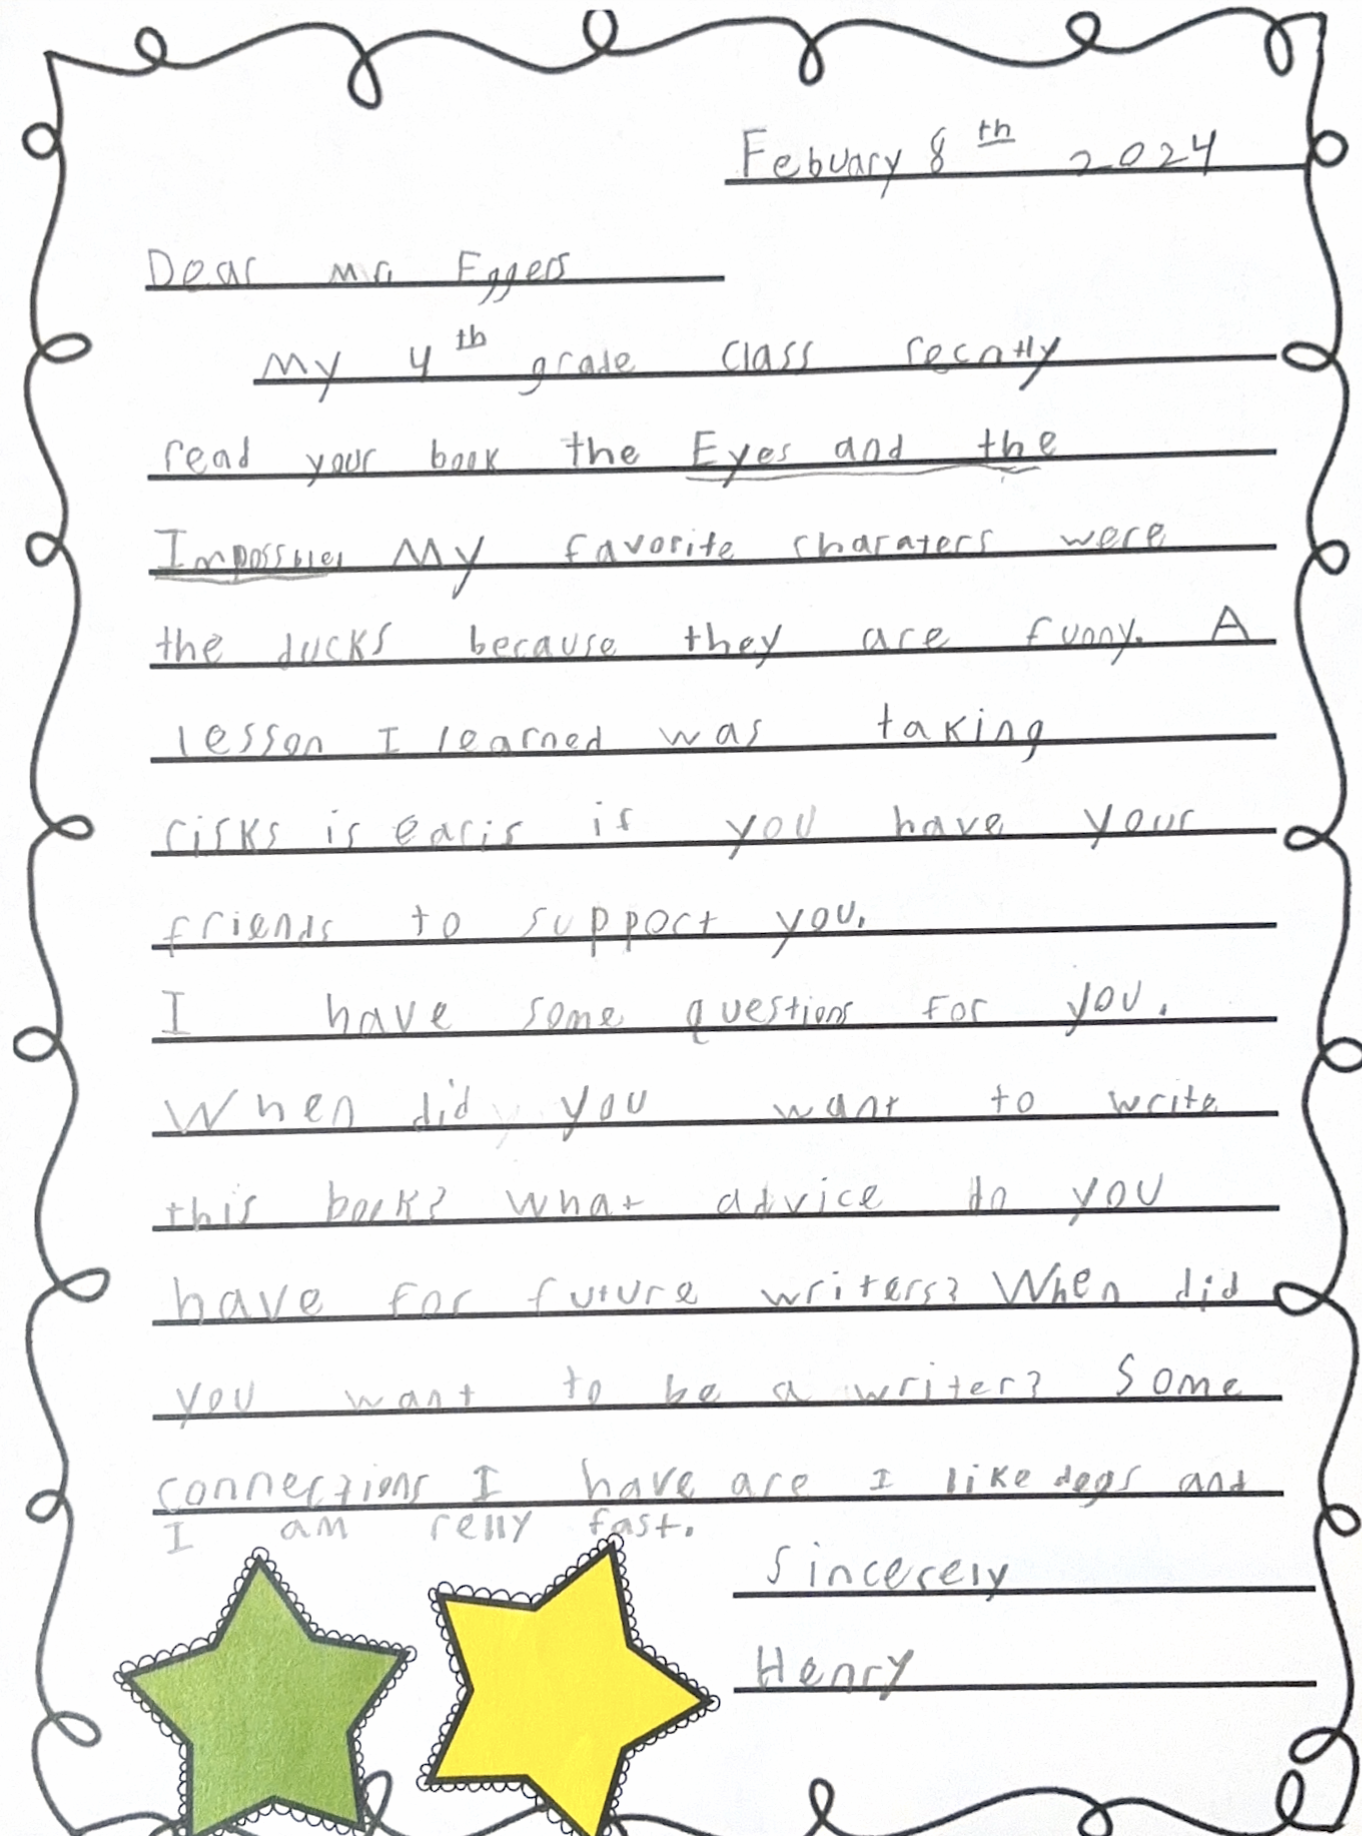 Febuary 8th 2024
Dear Mr. Eggers
My 4th grade class recntly
read your book the Eyes and the
Impossible, My favorite charaters were
the ducks because they are funny. A
lesson I learned was taking
risks is earis if you have your
friends to support you.
I have some questions for you.
When did you want to write
this book? What advice do you
have for future writers? When did
you want to be a writer? Some
connections I have are I like dogs and
I am relly fast.
Sincerely
Henry